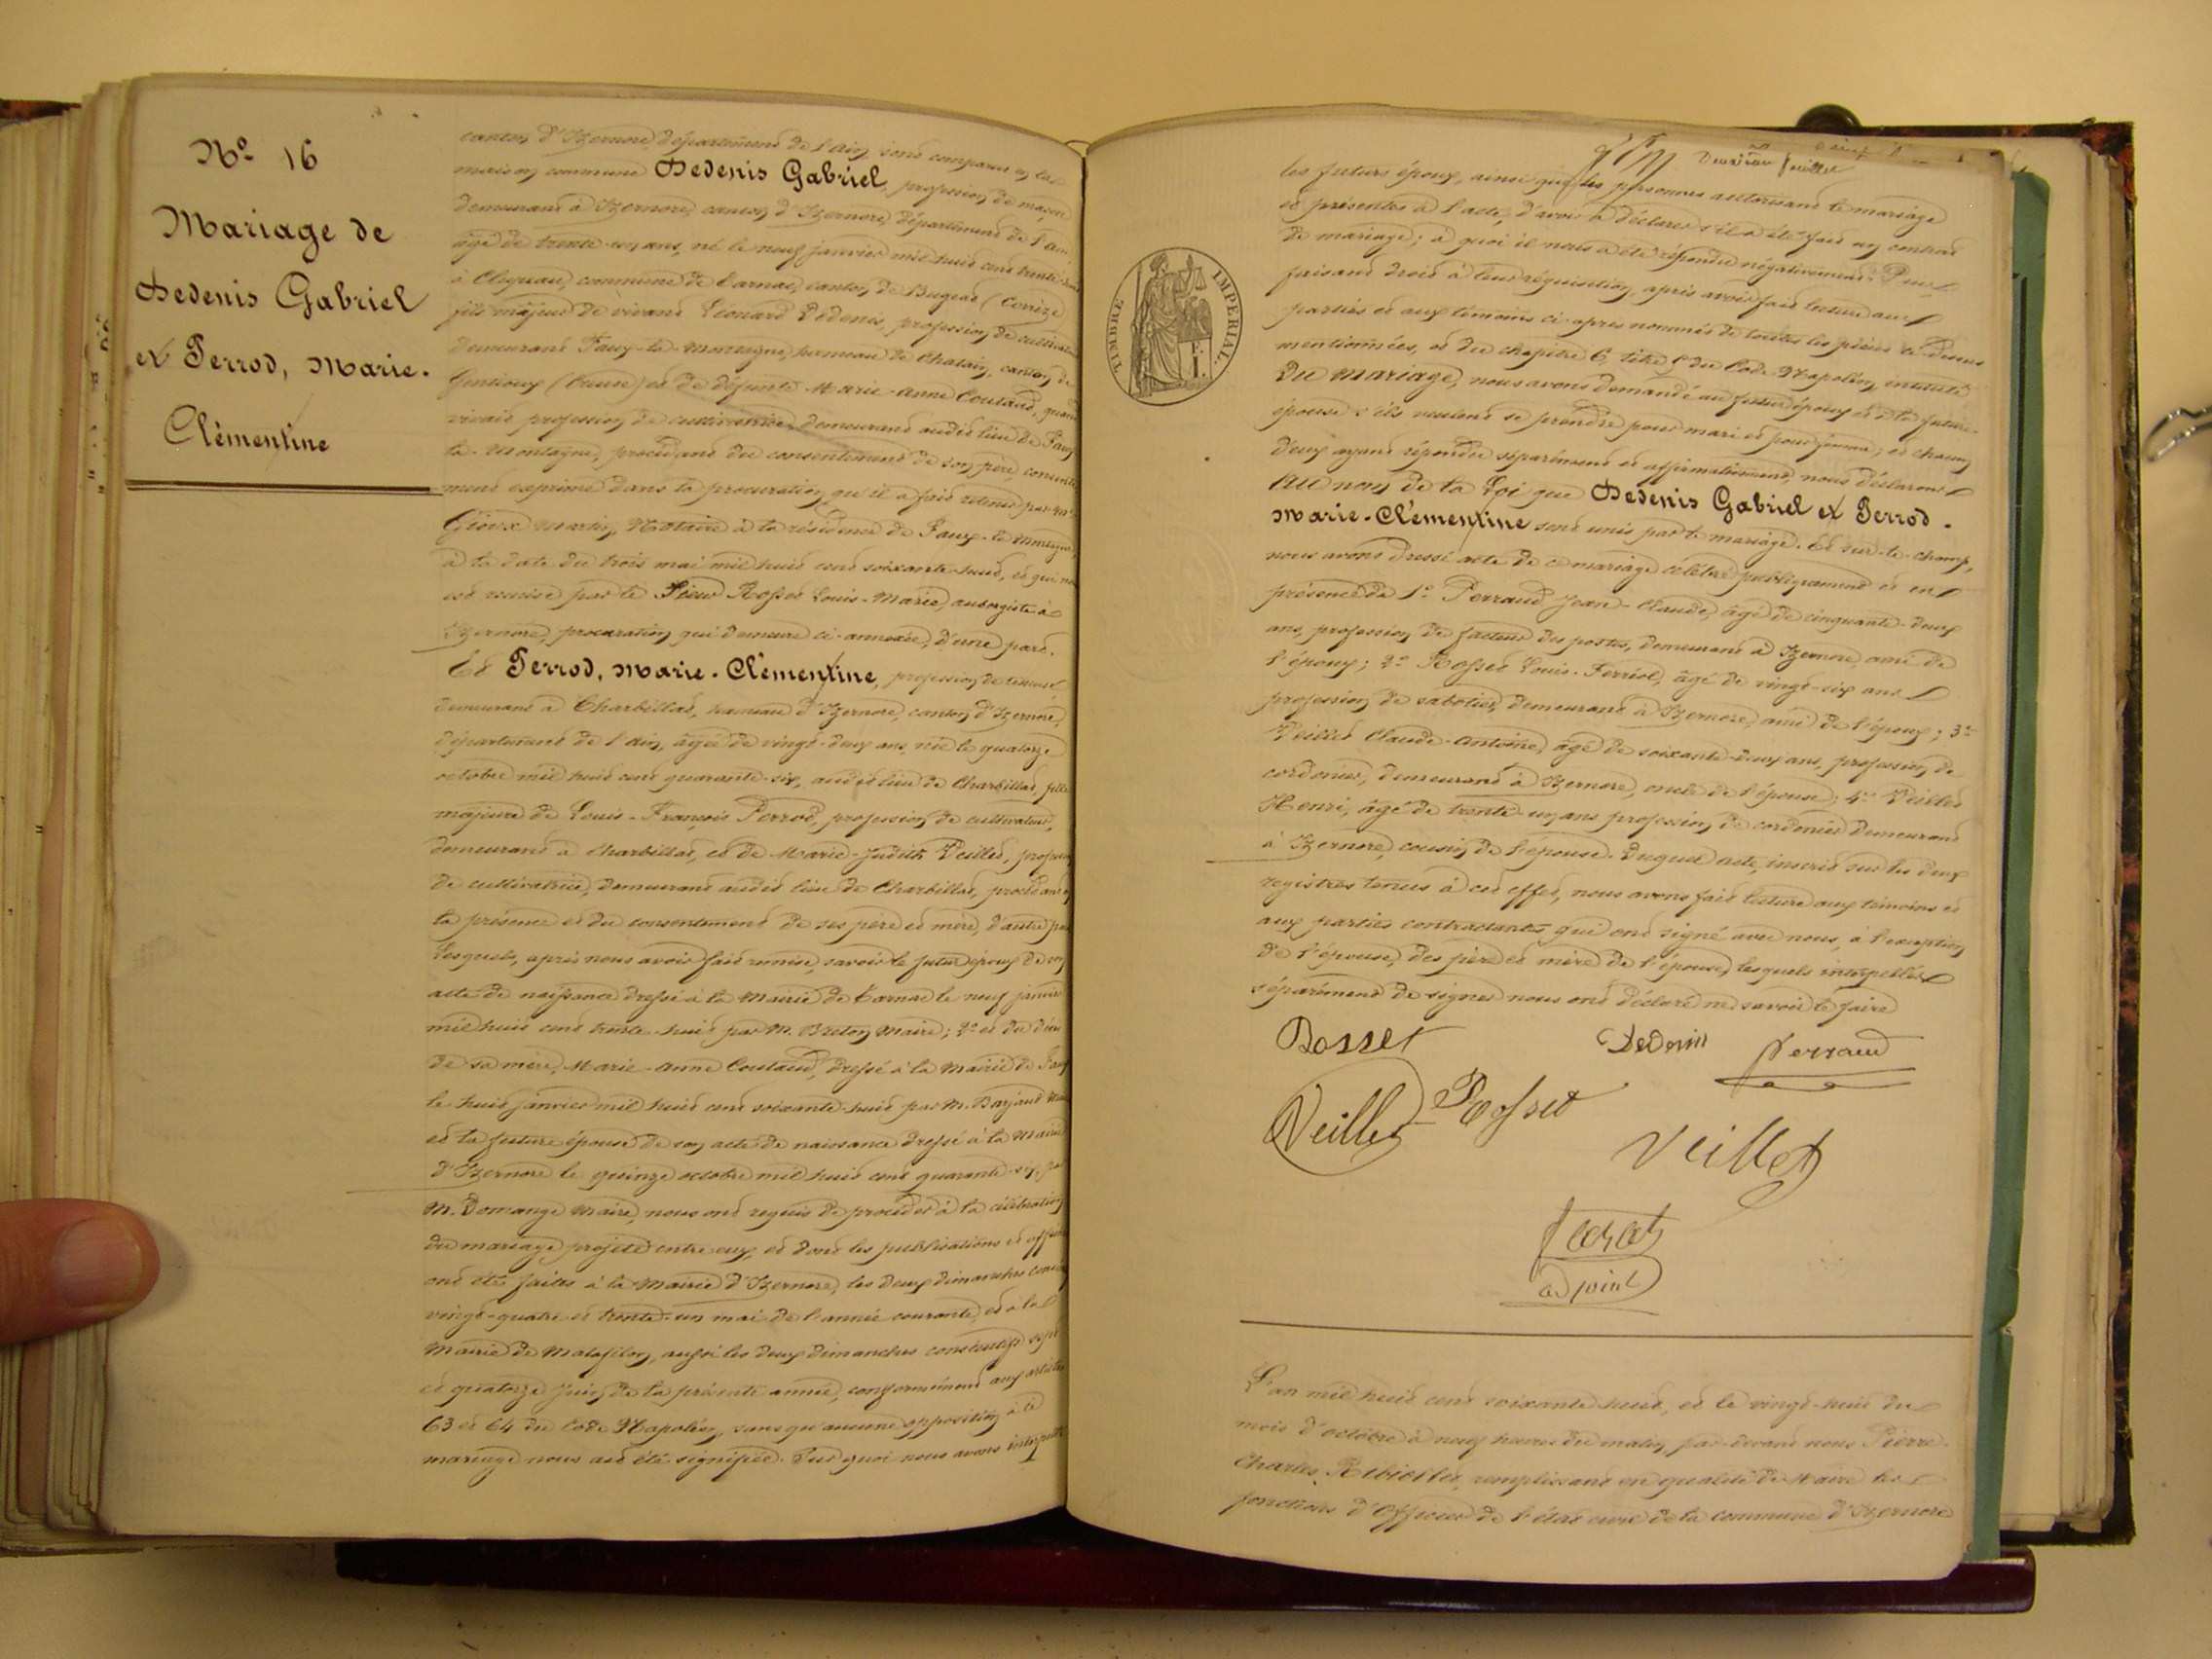 No 16
Mariage de
Dedenis Gabriel
et Perrod, Marie-
Clémentine
canton d'Izernore département de l'Ain sont comparus en la
maison commune Dedenis Gabriel, profession de maçon
demeurant à Izernore, canton d'Izernore, département de l'Ain,
âgé de trente-un ans, né le neuf janvier mil huit cent trente
à commune de Tarnac, canton de Bugeat (Corrèze)
fils majeur de vivant Léonard Dedenis, profession de cultivateur
demeurant Faux-la-Montagne, hameau de Chatain, canton de
Gentioux (Creuse) et de défunte Marie-Anne Coutaud, quand
vivait profession de cultivatrice, demeurant audit lieu de Faux
la-Montagne, procédant du consentement de son père, consente
ment exprimé dans la procuration qu'il a fait retenir par Me
Martin, Notaire à la résidence de Faux-la-Montagne,
à la date du trois mai mil huit cent soixante-huit, et qui
est remise par le Sieur Rosset Louis-Marie, aubergiste à
Izernore, procuration qui demeure ci-annexée, d'une part.
Et Perrod, Marie-Clémentine, profession de
demeurant à Charbillat, hameau d'Izernore, canton d'Izernore,
département de l'Ain, âgée de vingt-deux ans, née le quatorze
octobre mil huit cent quarante-six, audit lieu de Charbillat, fille
majeure de Louis-François Perrod, profession de cultivateur,
demeurant à Charbillat, et de Marie-Judith Veillet, profession
de cultivatrice, demeurant audit lieu de Charbillat, procédant en
la présence et du consentement de ses père et mère, d'autre part
Lesquels, après nous avoir fait remise, savoir le futur époux de son
acte de naissance dressé à la Mairie de Tarnac le neuf janvier
mil huit cent trente-huit par M. Breton Maire; 2o et du décès
de sa mère, Marie-Anne Coutaud, dressé à la Mairie de Faux
le huit janvier mil huit cent soixante-huit par M. Barjaud
et la future épouse de son acte de naissance dressé à la Mairie
d'Izernore le quinze octobre mil huit cent quarante-six, par
M. Domange Maire, nous ont requis de procéder à la célébration
du mariage projeté entre eux, et dont les publications et affiches
ont été faites à la Mairie d'Izernore, les deux dimanches
vingt-quatre et trente-un mai de l'année courante, et à la
Mairie de Matafelon, aussi les deux dimanches consécutifs sept
et quatorze juin de la présente année, conformément aux articles
63 et 64 du Code Napoléon, sans qu'aucune opposition à ce
mariage nous ait été signifiée. Sur quoi nous avons interpellé
feuillet
TIMBRE IMPERIAL
les futurs époux, ainsi que les personnes autorisant le mariage
et présentes à l'acte, d'avoir à déclarer s'il a été fait un contrat
de mariage; à quoi il nous a été répondu négativement. Puis
faisant droit à leur réquisition, après avoir fait lecture aux
parties et aux témoins ci-après nommés de toutes les pièces ci-dessus
mentionnées, et du chapitre 6, titre 5 du Code Napoléon, intitulé
Du Mariage, nous avons demandé au futur époux et à la future
épouse s'ils veulent se prendre pour mari et pour femme, et chacun
d'eux ayant répondu séparément et affirmativement, nous déclarons
Au nom de la Loi que Dedenis Gabriel et Perrod-
Marie-Clémentine sont unis par le mariage. Et sur-le-champ,
nous avons dressé acte de ce mariage célébré publiquement et en
présence de 1o Perraud Jean-Claude, âgé de cinquante-deux
ans, profession de facteur des postes, demeurant à Izernore, ami de
l'époux; 2o Rosset Louis-Ferréol, âgé de vingt-six ans
profession de sabotier, demeurant à Izernore, ami de l'époux; 3o
Veillet Claude-Antoine, âgé de soixante-deux ans, profession de
cordonier, demeurant à Izernore, oncle de l'épouse; 4o Veillet
Henri, âgé de trente-un ans profession de cordonier demeurant
à Izernore, cousin de l'épouse. Duquel acte, inscrit sur les deux
registres tenus à cet effet, nous avons fait lecture aux témoins et
aux parties contractantes qui ont signé avec nous, à l'exception
de l'épouse, des père et mère de l'épouse, lesquels interpellés
séparément de signer nous ont déclaré ne savoir le faire
Rosset Dedenis Perraud
Veillet Rosset
Veillet
adjoint
L'an mil huit cent soixante-huit, et le vingt-huit du
mois d'octobre à neuf heures du matin, par-devant nous Pierre-
Charles remplissant en qualité de Maire les
fonctions d'Officier de l'état civil de la commune d'Izernore